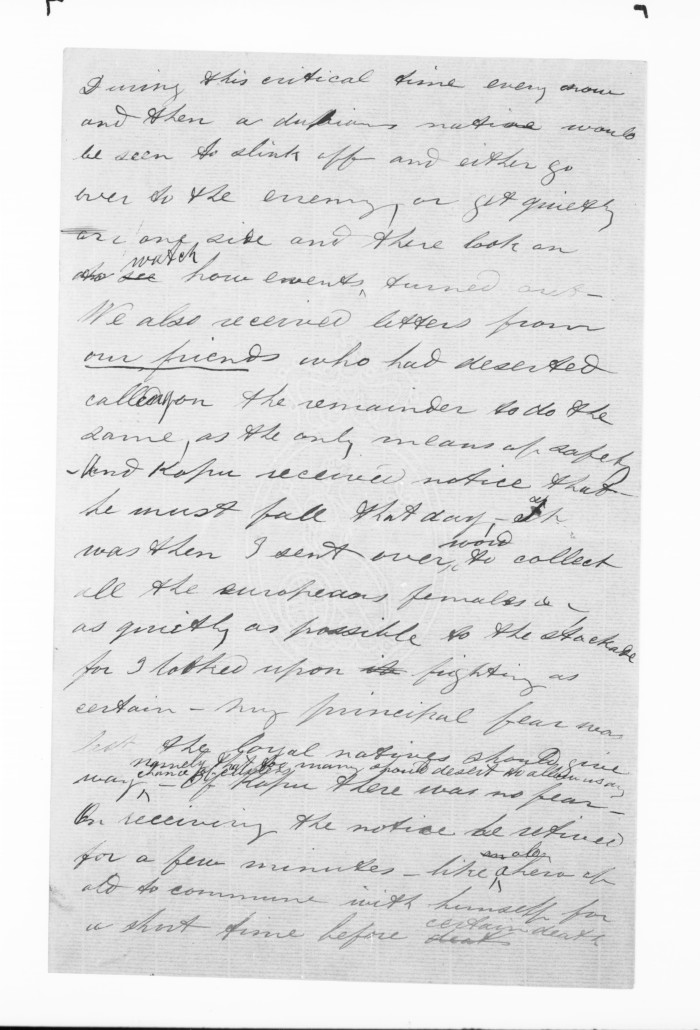 During this critical time every now
and then a dubious native would
be seen to slink off and either go
over to the enemy, or get quietly
on one side and there look on
to see watch how events turned out -
We also received letters from
our friends who had deserted
calling on the remainder to do the
same, as the only means of safety
- And Kopu received notice that
he must fall that day, - It
was then I sent over word to collect
all the europeans females &c
as quietly as possible to the stockade
for I looked upon it fighting as
certain - My principal fear was
lest the loyal natives should give
namely that too many should desert to allow us any
chance of success
way - Of Kopu there was no fear -
On receiving the notice he retired
for a few minutes - like a hero of
old to commune with himself for
a short time before death certain death